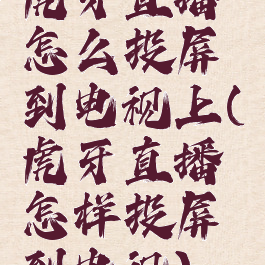 虎牙直播
怎么投屏
到电视上(
虎牙直播
怎样投屏
到电视)